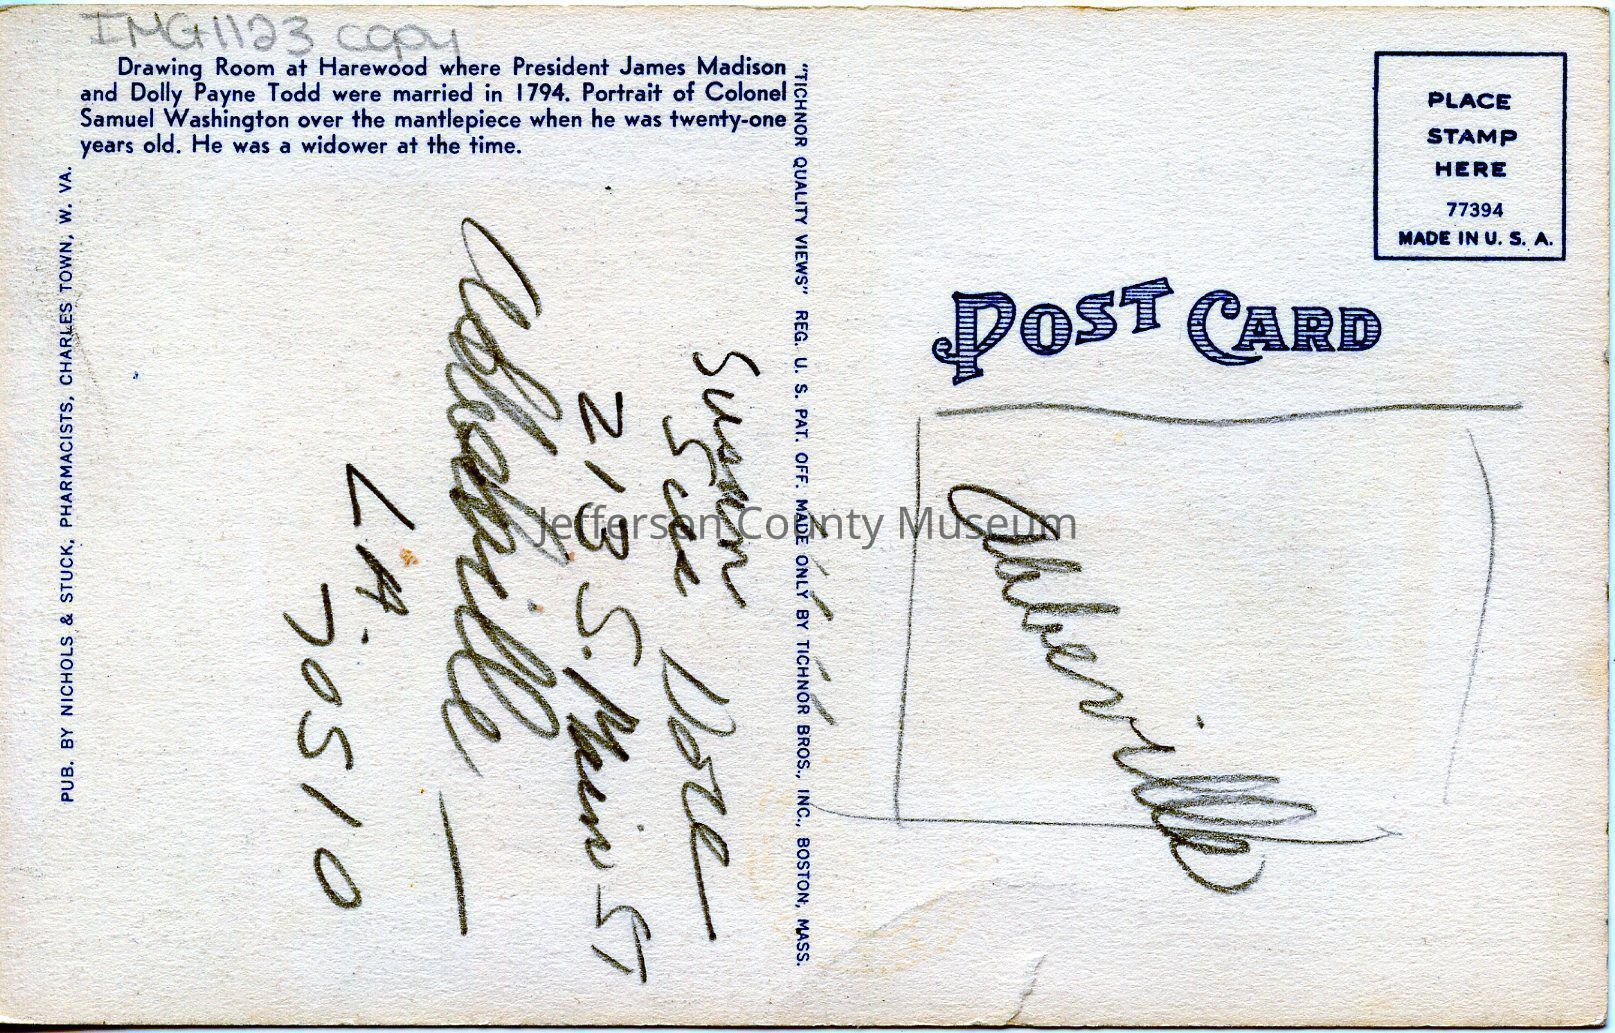 IMG1123 copy
Drawing Room at Harewood where President James Madison
and Dolly Payne Todd were married in 1794. Portrait of Colonel
Samuel Washington over the mantlepiece when he was twenty-one
years old. He was a widower at the time.
PUB. BY NICHOLS & STUCK, PHARMACISTS, CHARLES TOWN, W. VA.
"TICHNOR QUALITY VIEWS" REG. U. S. PAT. OFF. MADE ONLY BY TICHNOR BROS., INC., BOSTON, MASS.
PLACE
STAMP
HERE
77394
MADE IN U. S. A.
POST CARD
Susan
213 S. Main St
Abbeville
LA.
70510
Abbeville
Jefferson County Museum